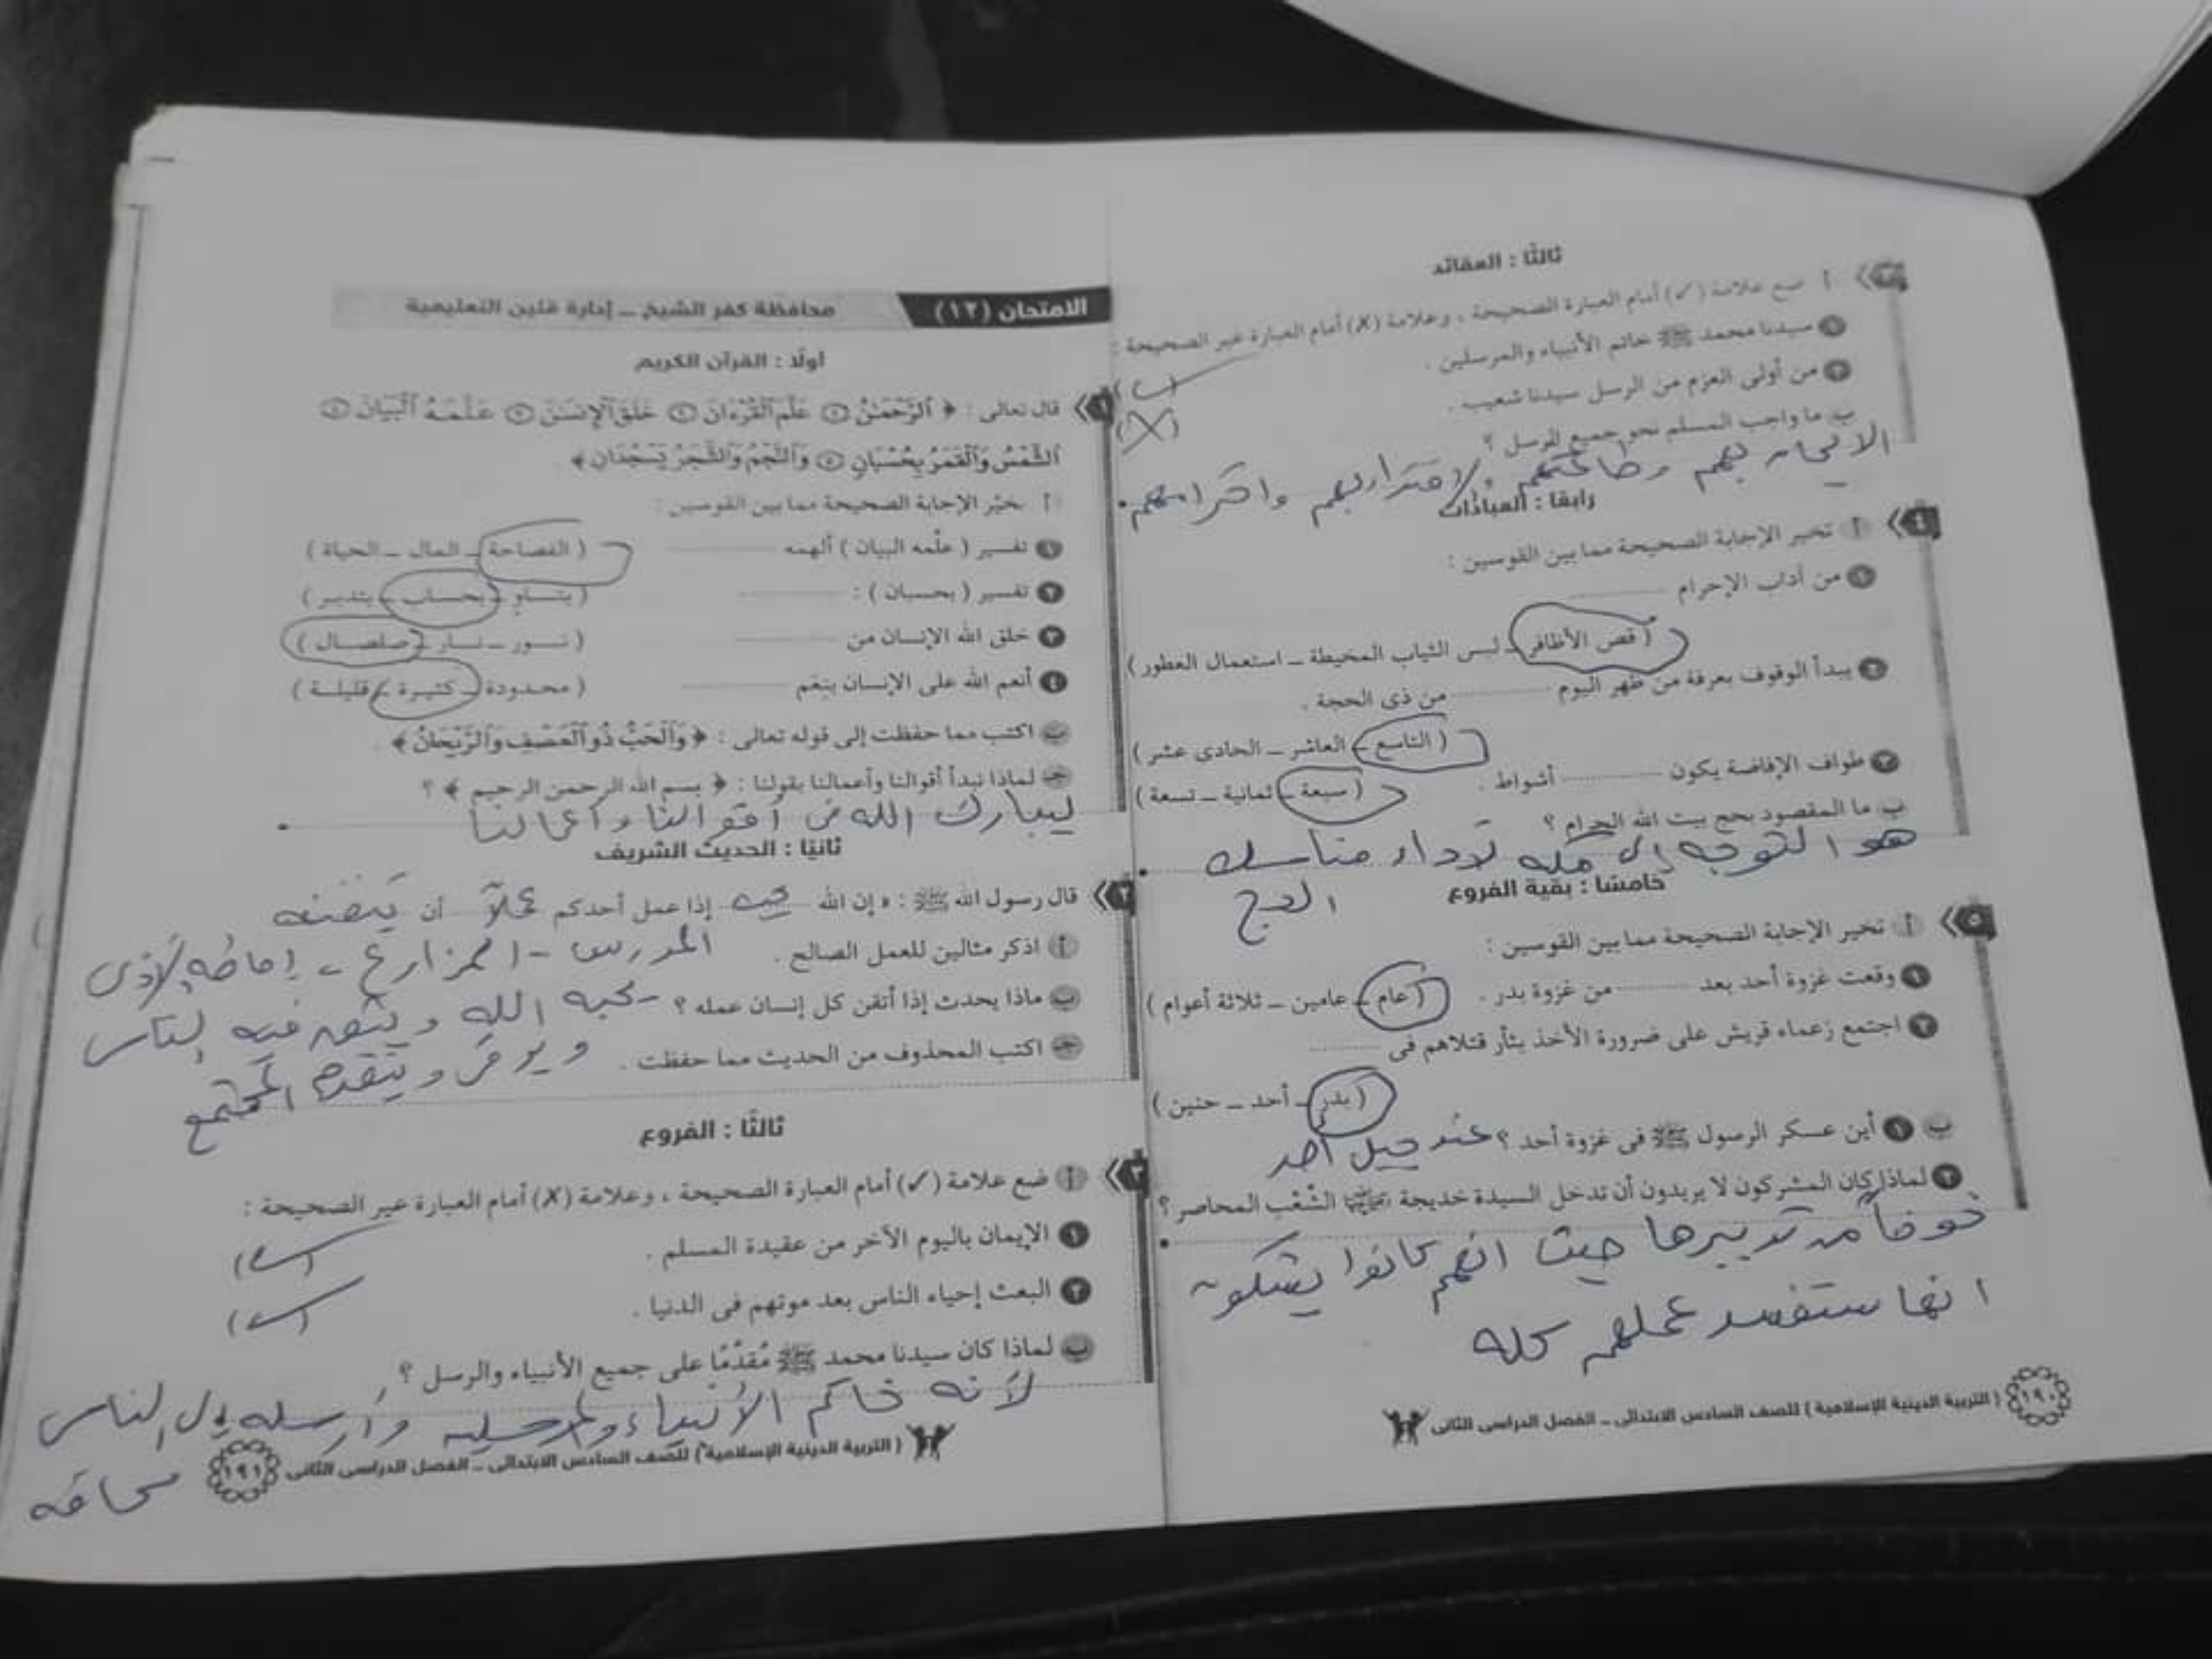 ثالثًا : العقائد
أ ضع علامة (✓) أمام العبارة الصحيحة ، وعلامة (✗) أمام العبارة غير الصحيحة :
١ سيدنا محمد ﷺ خاتم الأنبياء والمرسلين . (✓)
٢ من أولى العزم من الرسل سيدنا شعيب . (✗)
ب ما واجب المسلم نحو جميع الرسل ؟
الايمان بهم وطاعتهم والاقتداء بهم واحترامهم
رابعًا : العبادات
٤ أ تخير الإجابة الصحيحة مما بين القوسين :
١ من آداب الإحرام
( قص الأظافر – لبس الثياب المخيطة – استعمال العطور )
٢ يبدأ الوقوف بعرفة من ظهر اليوم من ذى الحجة .
( التاسع – العاشر – الحادى عشر )
٣ طواف الإفاضة يكون أشواط . ( سبعة – ثمانية – تسعة )
ب ما المقصود بحج بيت الله الحرام ؟
هو التوجه إلى مكه لأداء مناسك
الحج
خامسًا : بقية الفروع
٥ أ تخير الإجابة الصحيحة مما بين القوسين :
١ وقعت غزوة أحد بعد من غزوة بدر . ( عام – عامين – ثلاثة أعوام )
٢ اجتمع زعماء قريش على ضرورة الأخذ بثأر قتلاهم فى
( بدر – أحد – حنين )
ب ١ أين عسكر الرسول ﷺ فى غزوة أحد ؟ عند جبل أحد
٢ لماذا كان المشركون لا يريدون أن تدخل السيدة خديجة الشِّعْب المحاصر ؟
خوفاً من تدبيرها حيث انهم كانوا يشكون
انها ستفسد عملهم كله
١٩٠ ( التربية الدينية الإسلامية ) للصف السادس الابتدائى – الفصل الدراسى الثانى
الامتحان (١٢) محافظة كفر الشيخ – إدارة قلين التعليمية
أولًا : القرآن الكريم
١ قال تعالى : ﴿ ٱلرَّحْمَٰنُ ۝ عَلَّمَ ٱلْقُرْءَانَ ۝ خَلَقَ ٱلْإِنسَٰنَ ۝ عَلَّمَهُ ٱلْبَيَانَ ۝
ٱلشَّمْسُ وَٱلْقَمَرُ بِحُسْبَانٍ ۝ وَٱلنَّجْمُ وَٱلشَّجَرُ يَسْجُدَانِ ﴾
أ تخيّر الإجابة الصحيحة مما بين القوسين :
١ تفسير ( علّمه البيان ) ألهمه ( الفصاحة – المال – الحياة )
٢ تفسير ( بحسبان ) : ( بتساوٍ – بحساب – بتدبير )
٣ خلق الله الإنسان من ( نور – نار – صلصال )
٤ أنعم الله على الإنسان بنعم ( محدودة – كثيرة – قليلة )
ب اكتب مما حفظت إلى قوله تعالى : ﴿ وَٱلْحَبُّ ذُو ٱلْعَصْفِ وَٱلرَّيْحَانُ ﴾ .
جـ لماذا نبدأ أقوالنا وأعمالنا بقولنا : ﴿ بسم الله الرحمن الرحيم ﴾ ؟
ليبارك الله فى أقوالنا وأعمالنا
ثانيًا : الحديث الشريف
٢ قال رسول الله ﷺ : « إن الله يحب إذا عمل أحدكم عملاً أن يتقنه
أ اذكر مثالين للعمل الصالح . المدرس - المزارع - إماطه الأذى
ب ماذا يحدث إذا أتقن كل إنسان عمله ؟ يحبه الله و يثق فيه الناس
جـ اكتب المحذوف من الحديث مما حفظت . و يتقدم المجتمع
ثالثًا : الفروع
٣ أ ضع علامة (✓) أمام العبارة الصحيحة ، وعلامة (✗) أمام العبارة غير الصحيحة :
١ الإيمان باليوم الآخر من عقيدة المسلم . (✓)
٢ البعث إحياء الناس بعد موتهم فى الدنيا . (✓)
ب لماذا كان سيدنا محمد ﷺ مُقدَّمًا على جميع الأنبياء والرسل ؟
لأنه خاتم الأنبياء والمرسلين وأرسله إلى الناس
كافه
( التربية الدينية الإسلامية ) للصف السادس الابتدائى – الفصل الدراسى الثانى ١٩١